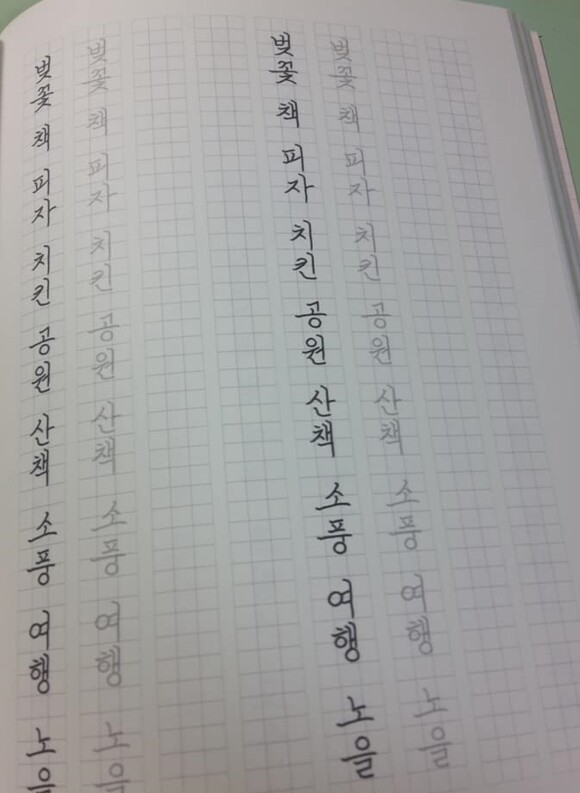 벚꽃 책 피자 치킨 공원 산책 소풍 여행 노을
벚꽃 책 피자 치킨 공원 산책 소풍 여행 노을
벚꽃 책 피자 치킨 공원 산책 소풍 여행 노을
벚꽃 책 피자 치킨 공원 산책 소풍 여행 노을